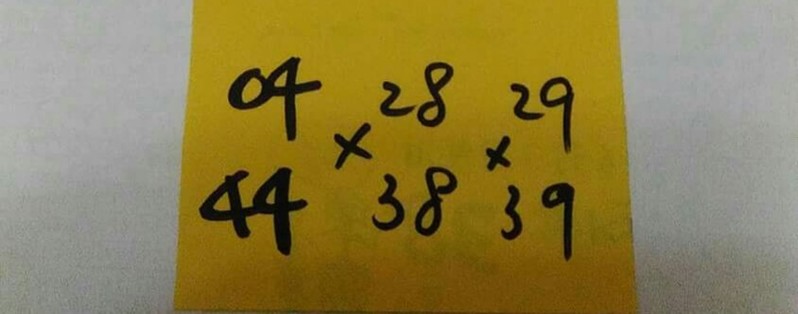 04 28 29
× ×
44 38 39